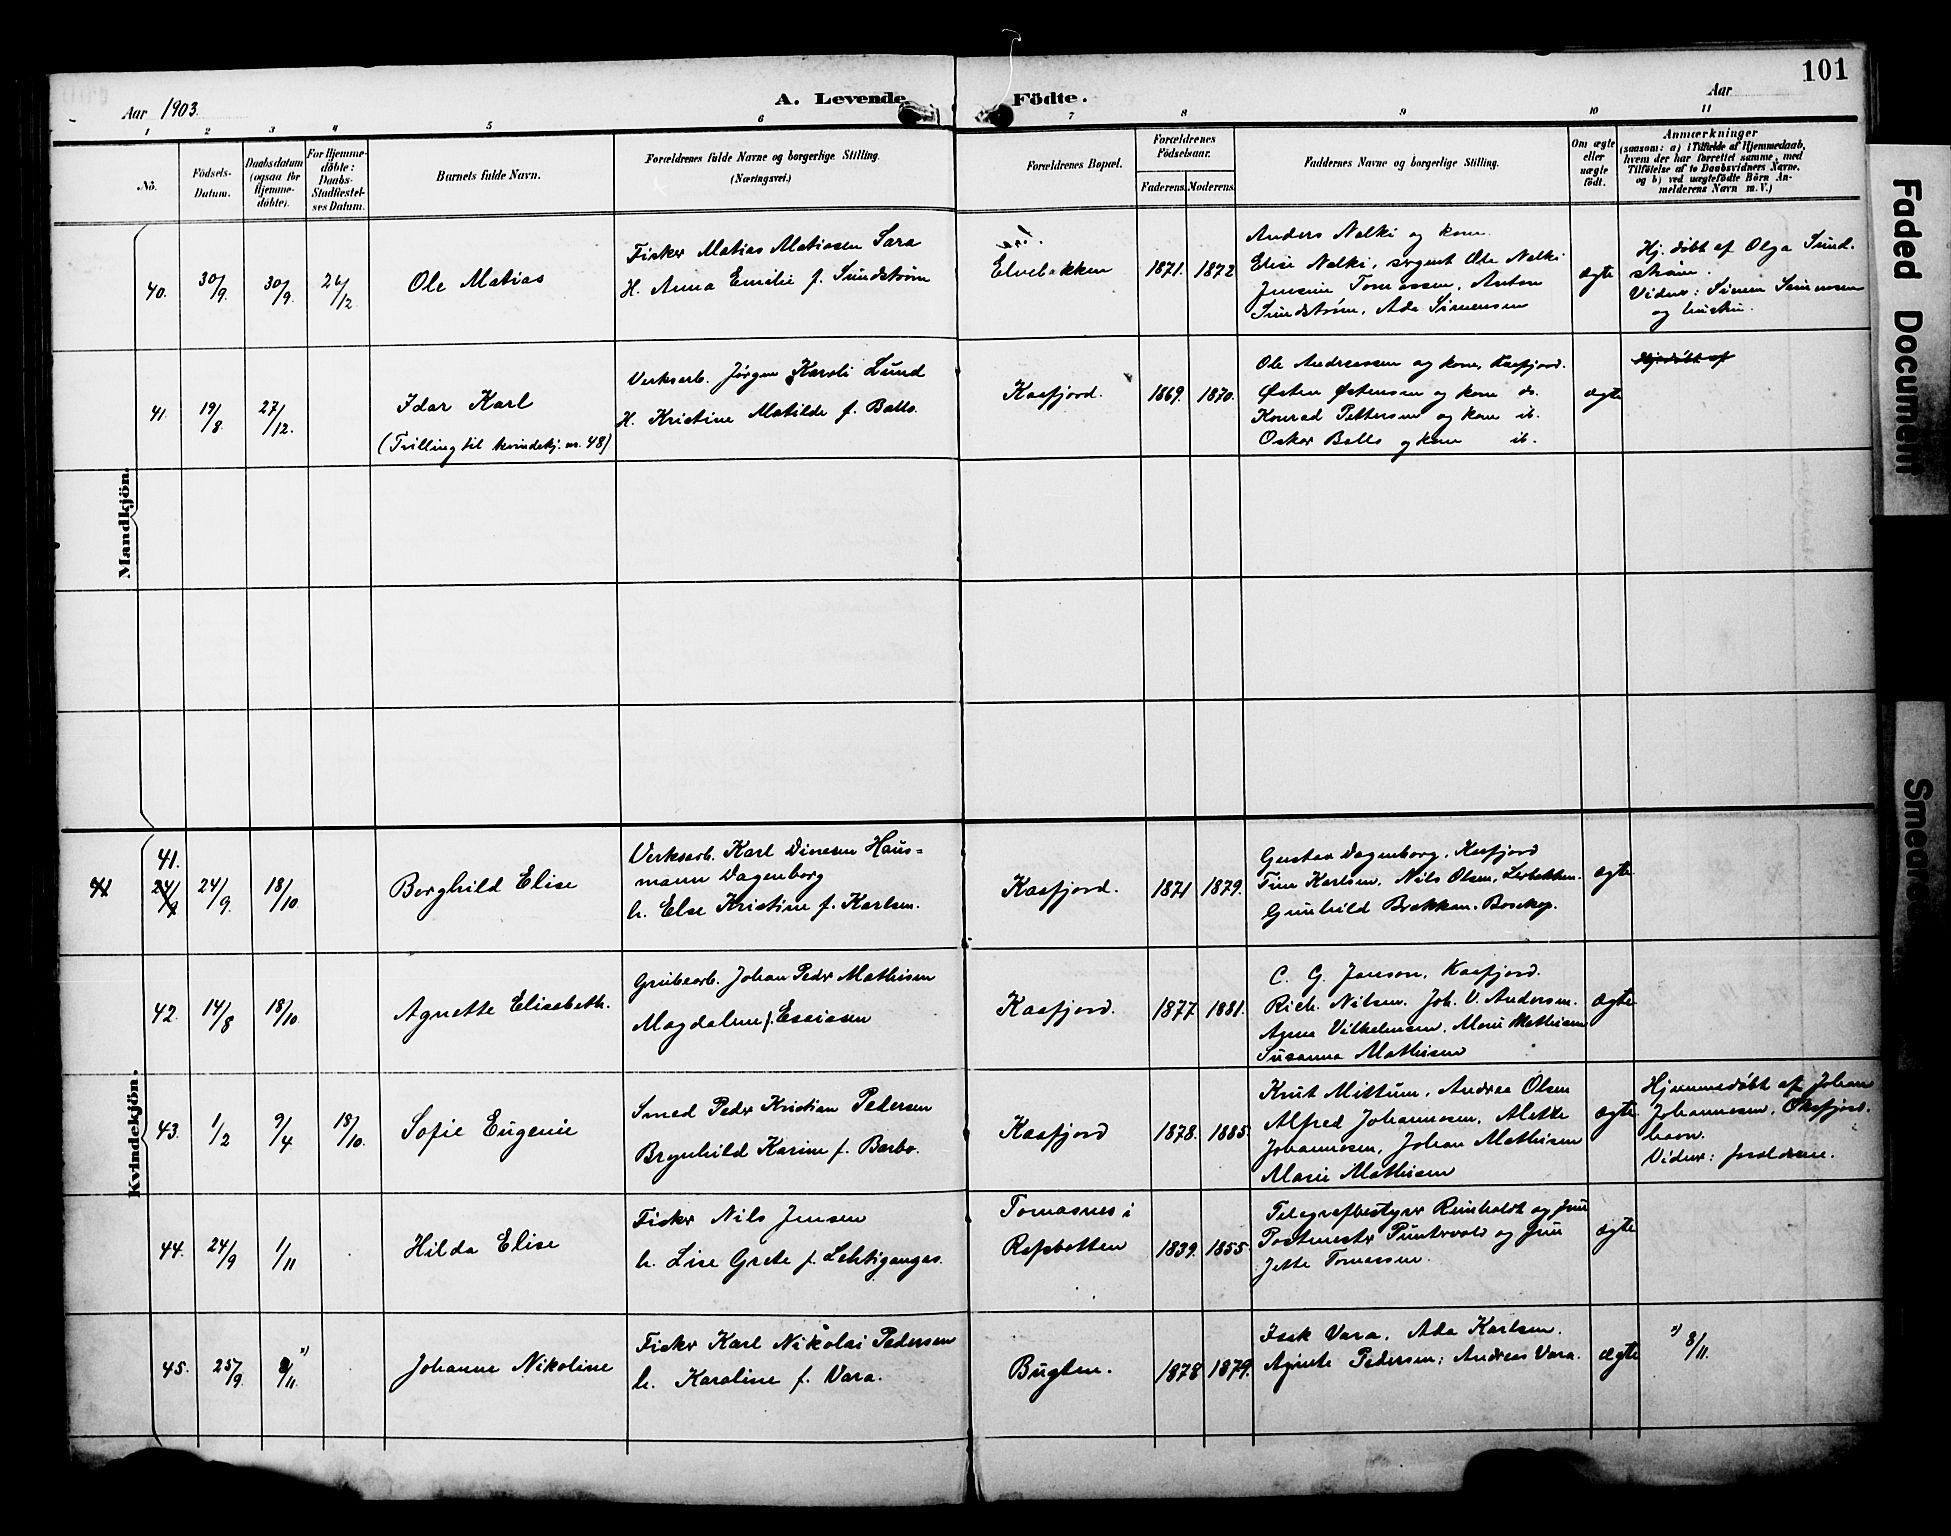 101
Aar 1903.
A. Levende Födte.
Aar
1 2 3 4 5 6 7 8 9 10 11
No.
Födsels-
Datum.
Daabsdatum
(ogsaa for
Hjemme-
döbte).
For Hjemme-
döbte:
Daabs-
Stadfæstel-
ses Datum.
Barnets fulde Navn.
Forældrenes fulde Navne og borgerlige Stilling.
(Næringsvei.)
Forældrenes Bopæl.
Forældrenes
Födselsaar.
Faderens. Moderens.
Faddernes Navne og borgerlige Stilling.
Om ægte
eller
uægte
födt.
Anmærkninger
(saasom: a) i Tilfælde af Hjemmedaab,
hvem der har forrettet samme, med
Tilföielse af to Daabsvidners Navne,
og b) ved uægtefödte Börn An-
melderens Navn m. V.)
Mandkjön.
40. 30/9. 30/9. 26/12. Ole Matias
Fisker Matias Matiassen Sara
H. Anna Emilie f. Sundstrøm
Elvebakken 1871. 1872
Anders Nalki og kone.
Elise Nalki, svgmt Ole Nalki
Jensine Tomassen, Anton
Sundstrøm, Ada Simensen
ægte
Hj. døbt af Olga Sund-
strøm.
Vidner: Simen Simensen
og hustru.
41. 19/8. 27/12. Idar Karl
(Trilling til kvindekj. nr. 48)
Verksarb. Jørgen Karoli Lund
H. Kristine Matilde f. Ballo.
Kaafjord. 1869. 1870.
Ole Andreassen og kone, Kaafjord.
Østen Østensen og kone do.
Konrad Pettersen og kone ib.
Oskar Ballo og kone ib.
ægte
Hjemdøbt af
Kvindekjön.
41
41.
24/9 24/9. 18/10. Borghild Elise
Verksarb. Karl Dinesen Haus=
mann Dagenborg
h. Else Kristine f. Karlsen.
Kaafjord. 1871 1879.
Gustav Dagenborg, Kaafjord
Tine Karlsen, Nils Olsen, Lerbakken.
Gunhild Brækken, Bosekop.
ægte
42. 14/8 18/10. Agnette Elisabeth.
Grubearb. Johan Peder Mathisen
Magdalene f. Esaiasen
Kaafjord. 1877. 1881.
C. G. Janson, Kaafjord.
Rich. Nilsen. Joh. V. Andersen.
Agnes Vilhelmsen, Marie Mathisen
Susanna Mathisen
ægte
43. 1/2 9/4 18/10. Sofie Eugenie
Smed Peder Kristian Pedersen
Brynhild Karine f. Barbo.
Kaafjord 1878. 1885.
Knut Mittun, Andrea Olsen
Alfred Johannesen, Alette
Johannesen, Johan Mathisen
Marie Mathisen
ægte.
Hjemmedøbt af Johan
Johannesen, Øksfjord-
havn.
Vidner: forældrene.
44. 24/9 1/11 Hilda Elise
Fisker Nils Jensen
h. Lise Grete f. Lehtigangas.
Tomasnes i
Rafsbotten 1839. 1855.
Telegrafbestyrer Reinholdt og frue
Postmester Puntervold og frue
Jette Tomassen.
ægte
45. 25/9. 8/11. ")
Johanne Nikoline
Fisker Karl Nikolai Pedersen
h. Karoline f. Vara.
Bugten. 1878 1879.
Isak Vara, Ada Karlsen.
Agnete Pedersen; Andreas Vara.
ægte
") 8/11.
Faded Document
Smeared